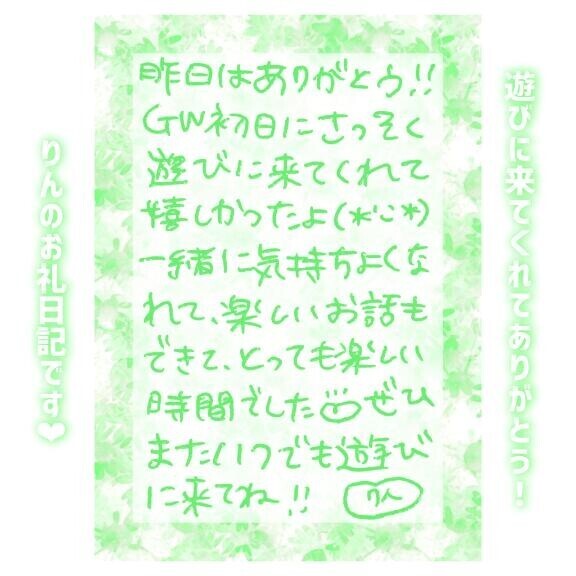 遊びに来てくれてありがとう！
昨日はありがとう!!
GW初日にさっそく
遊びに来てくれて
嬉しかったよ(*ˊᵕˋ*)
一緒に気持ちよくな
れて、楽しいお話も
できて、とっても楽しい
時間でした ぜひ
またいつでも遊び
に来てね!!
りん
りんのお礼日記です♥